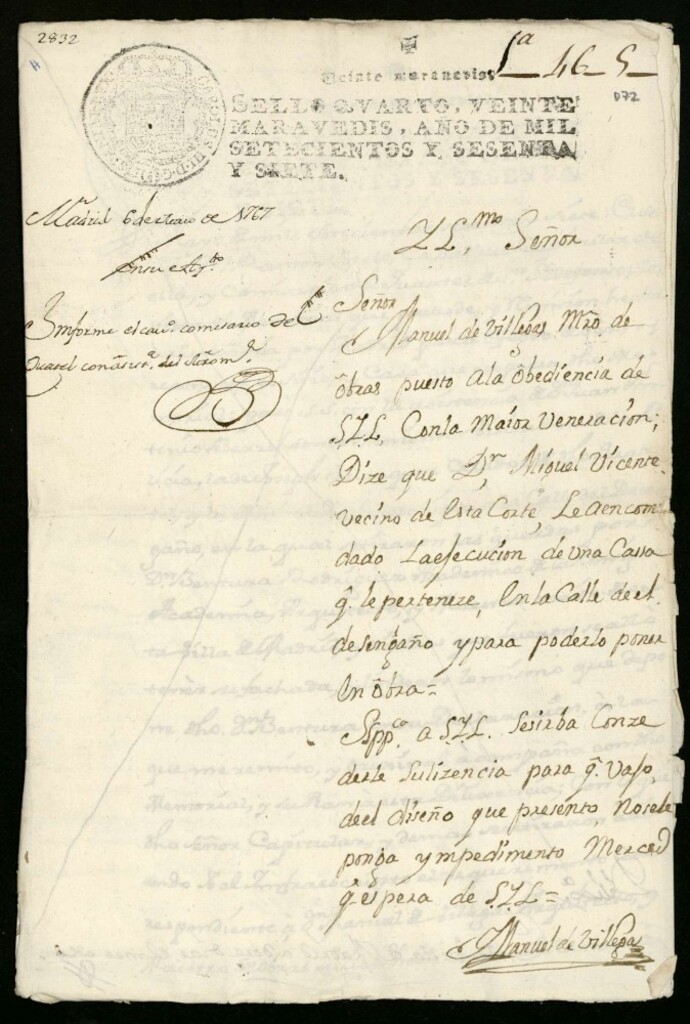 2832
1ª 46 5
072
Veinte maravedis
SELLO QVARTO, VEINTE
MARAVEDIS, AÑO DE MIL
SETECIENTOS Y SESENTA
Y SIETE.
Madrid 6 de de 1767
En su Ayto
Informe el cavº. comisario de
Quartel con asistª. del Mrô mr.
Y L, mo Señor
Señor
Manuel de Villegas Mrô de
ôbras puesto ala ôbediencia de
S.Y.L, Conla Maior Veneracion;
Dize que Dn, Miguel Vicente
vecino de Esta Corte, Le aencom
dado Laejecucion de una Cassa
q. le perteneze, Enla Calle deel
desengaño ypara poderlo poner
En ôbra=
Sppco a S.Y.L. Sesirba Conze
derle Sulizencia para q. Vajo,
deel diseño que presento, Nosele
ponga ympedimento Merced
q. espera de S.Y.L=
Manuel de Villegas